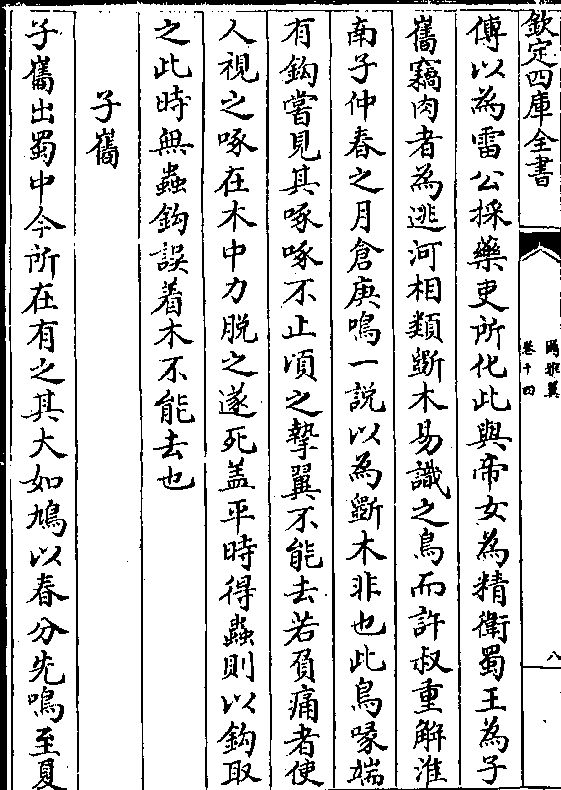 欽定四庫全書
爾雅翼
卷十四
八
傳以為雷公採藥吏所化此與帝女為精衛蜀王為子
巂竊肉者為逃河相類斲木易識之鳥而許叔重解淮
南子仲春之月倉庚鳴一説以為斲木非也此鳥喙端
有鈎嘗見其啄啄不止頃之摯翼不能去若負痛者使
人視之啄在木中力脱之遂死盖平時得蟲則以鈎取
之此時無蟲鈎誤着木不能去也
子巂
子巂出蜀中今所在有之其大如鳩以春分先鳴至夏